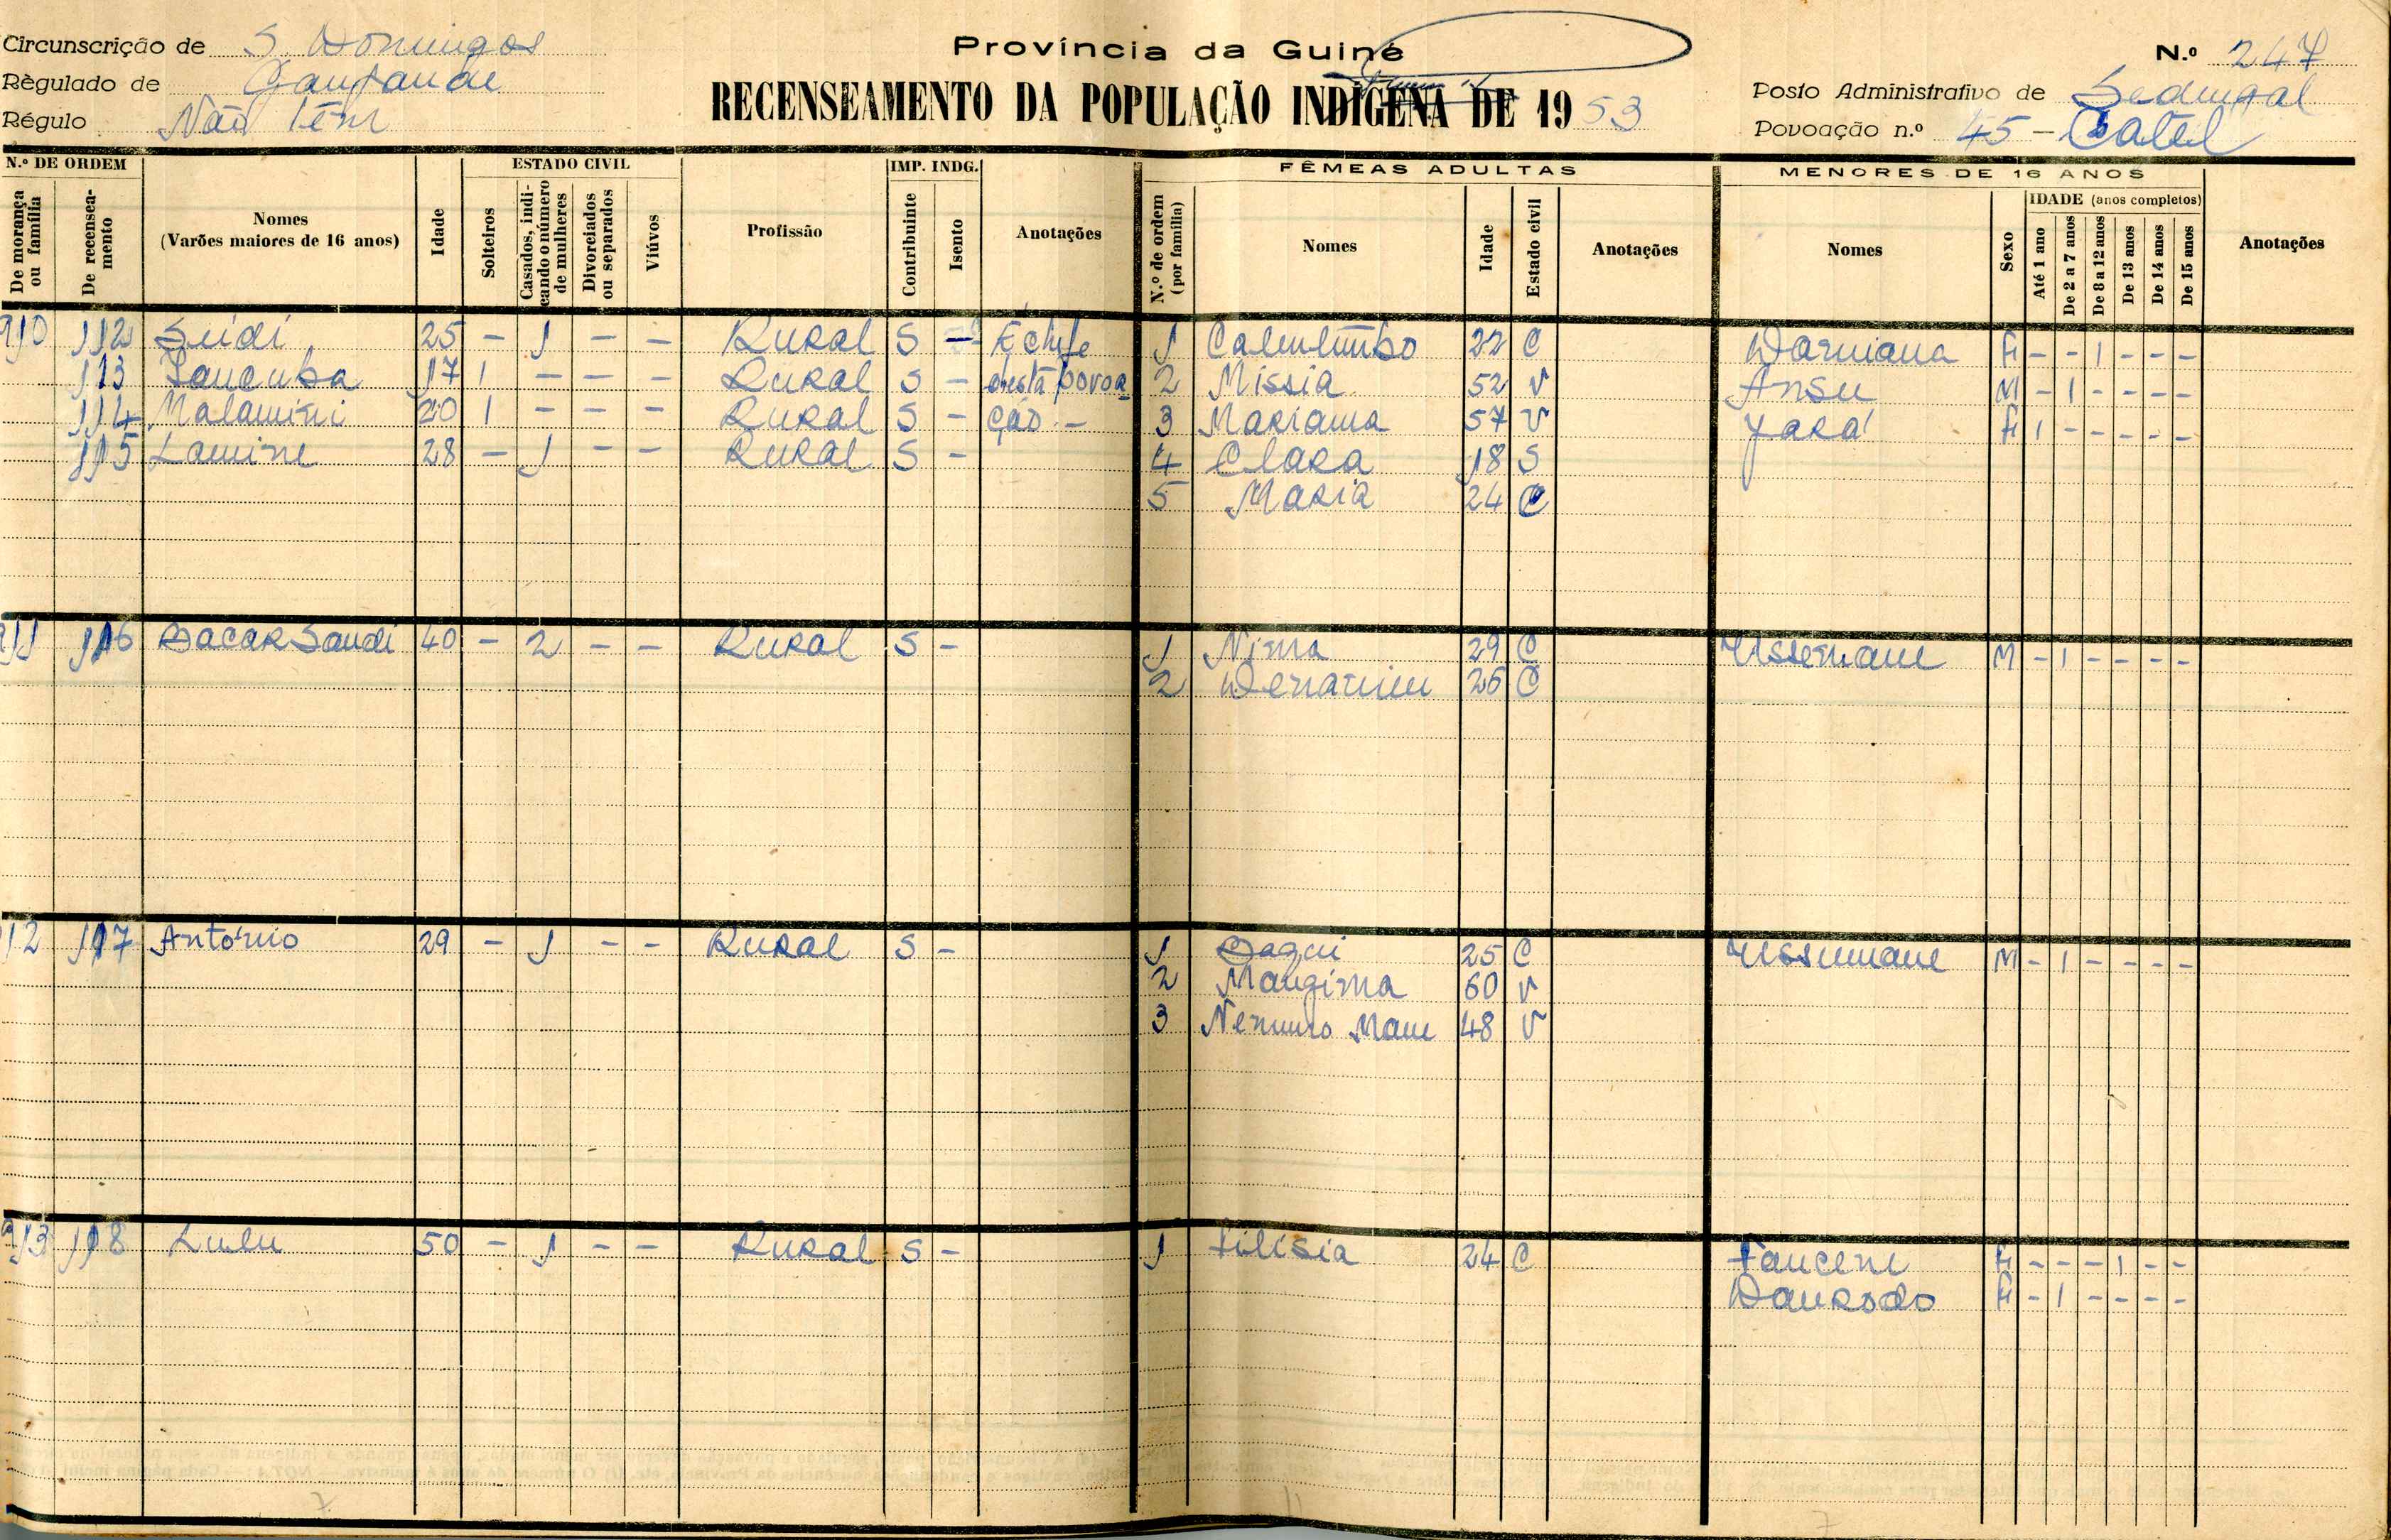 Circunscrição de S. Domingos
Règulado de
Régulo Não têm
Província da Guiné
RECENSEAMENTO DA POPULAÇÃO INDÍGENA DE 1953
N.º 247
Posto Administrativo de Sedengal
Povoação n.º 45 - Catel
N.º DE ORDEM
De morança ou família
De recenseamento
Nomes
(Varões maiores de 16 anos)
Idade
ESTADO CIVIL
Solteiros
Casados, indicando o número de mulheres
Divorciados ou separados
Viúvos
Profissão
IMP. INDG.
Contribuinte
Isento
Anotações
FÊMEAS ADULTAS
N.º de ordem (por família)
Nomes
Idade
Estado civil
Anotações
MENORES DE 16 ANOS
Nomes
Sexo
IDADE (anos completos)
Até 1 ano
De 2 a 7 anos
De 8 a 12 anos
De 13 anos
De 14 anos
De 15 anos
Anotações
910 112 Seidi 25 - 1 - - Rural S - É chefe 1 22 C Warniana F - - 1 - - -
113 17 1 - - - Rural S - desta povoa 2 Missia 52 V Ansu M - 1 - - - -
114 Malamini 20 1 - - - Rural S - ção.- 3 Mariama 57 V Jará F 1 - - - - -
115 Lamine 28 - 1 - - Rural S - 4 Clara 18 S
5 Maria 24 C
911 116 Bacar Sandi 40 - 2 - - Rural S - 1 Nima 29 C Ussemane M - 1 - - - -
2 C
912 117 António 29 - 1 - - Rural S - 1 Baqui 25 C Ussumane M - 1 - - - -
2 Mangima 60 V
3 Mane 48 V
913 118 Lulu 50 - 1 - - Rural S - 1 Filisia 24 C Faucene F - - - 1 - -
Waurodo F - 1 - - - -